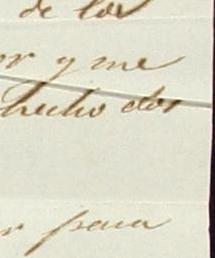 de los
or y me
hecho dos
r para